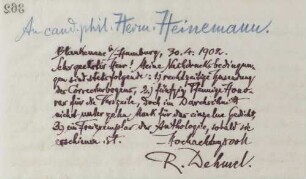 An cand. phil. Herm. Heinemann.
Blankenese b/Hamburg, 30.4.1902.
Sehr geehrter Herr! Meine Nachdrucksbedingun-
gen sind stets folgende: 1) rechtzeitige Zusendung
des Correcturbogens, 2) fünfzig Pfennige Hono-
rar für die Verszeile, doch im Durchschnitt
nicht unter zehn Mark für das einzelne Gedicht,
3) ein Freiexemplar der Anthologie, sobald sie
erschienen ist.
Hochachtungsvoll
R. Dehmel.